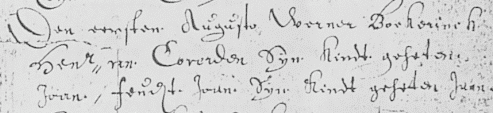 Den eersten Augusto Werner Boekerinck
Henr: van Coverden Syn Kindt geheten
Joan, Feudt Joan Syn Kindt geheten Joan